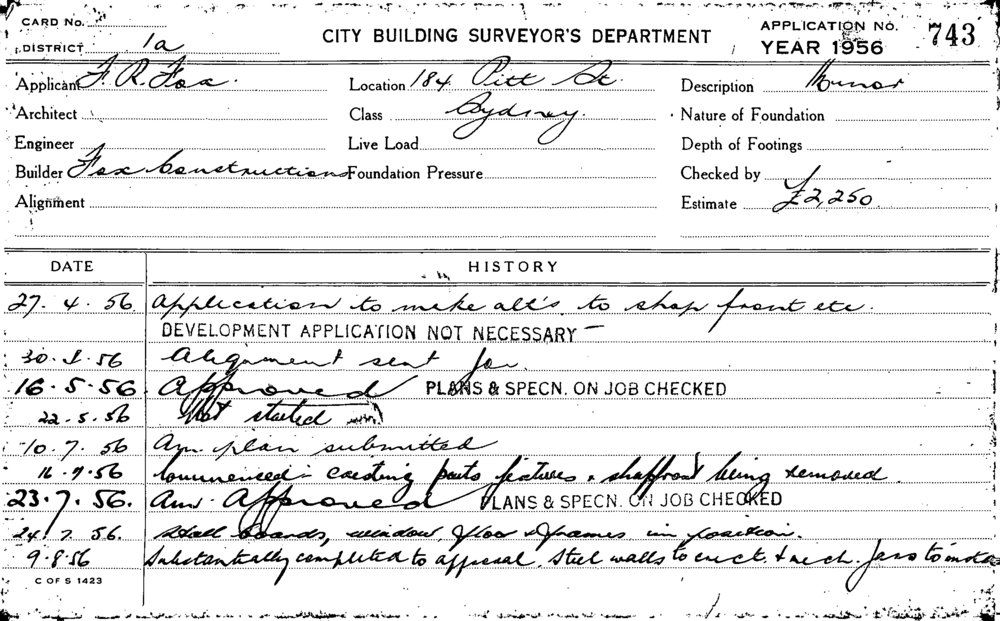 CARD No.
DISTRICT 1a
CITY BUILDING SURVEYOR'S DEPARTMENT
APPLICATION No. 743
YEAR 1956
Applicant F. R. Fox. Location 184 Pitt St. Description Minor
Architect Class Sydney. Nature of Foundation
Engineer Live Load Depth of Footings
Builder Fox Constructions Foundation Pressure Checked by
Alignment Estimate £2,250
DATE HISTORY
27. 4. 56 Application to make alt's. to shop front etc.
DEVELOPMENT APPLICATION NOT NECESSARY
56 Alignment sent for.
16.5.56. Approved PLANS & SPECN. ON JOB CHECKED
22.5.56 Not started
10.7.56 Am. plan submitted
16.7.56 Commenced - existing parts fixtures & shopfront being removed
23.7.56. Am. Approved PLANS & SPECN. ON JOB CHECKED
24.7.56. Stall boards, window, floor & frames in position.
9.8.56 Substantially completed to approval. Steel walls to erect. & mech. to
C OF S 1423